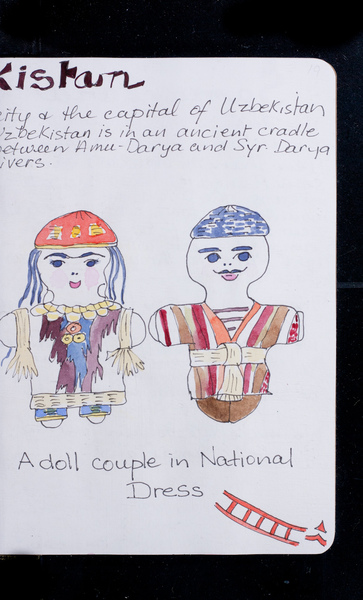 kistan
city & the capital of Uzbekistan
Uzbekistan is in an ancient cradle
between Amu-Darya and Syr-Darya
ivers.
A doll couple in National
Dress